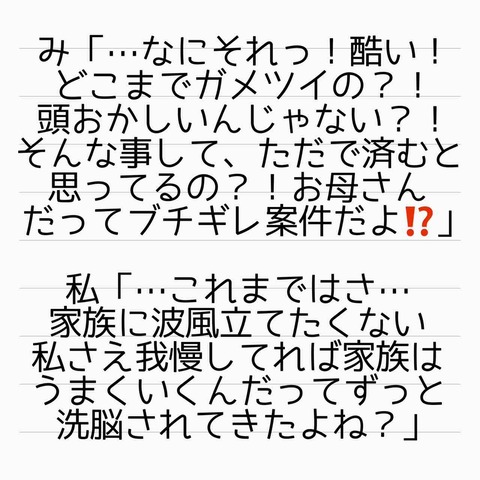 み「…なにそれっ！酷い！
どこまでガメツイの？！
頭おかしいんじゃない？！
そんな事して、ただで済むと
思ってるの？！お母さん
だってブチギレ案件だよ⁉️」
私「…これまではさ…
家族に波風立てたくない
私さえ我慢してれば家族は
うまくいくんだってずっと
洗脳されてきたよね？」